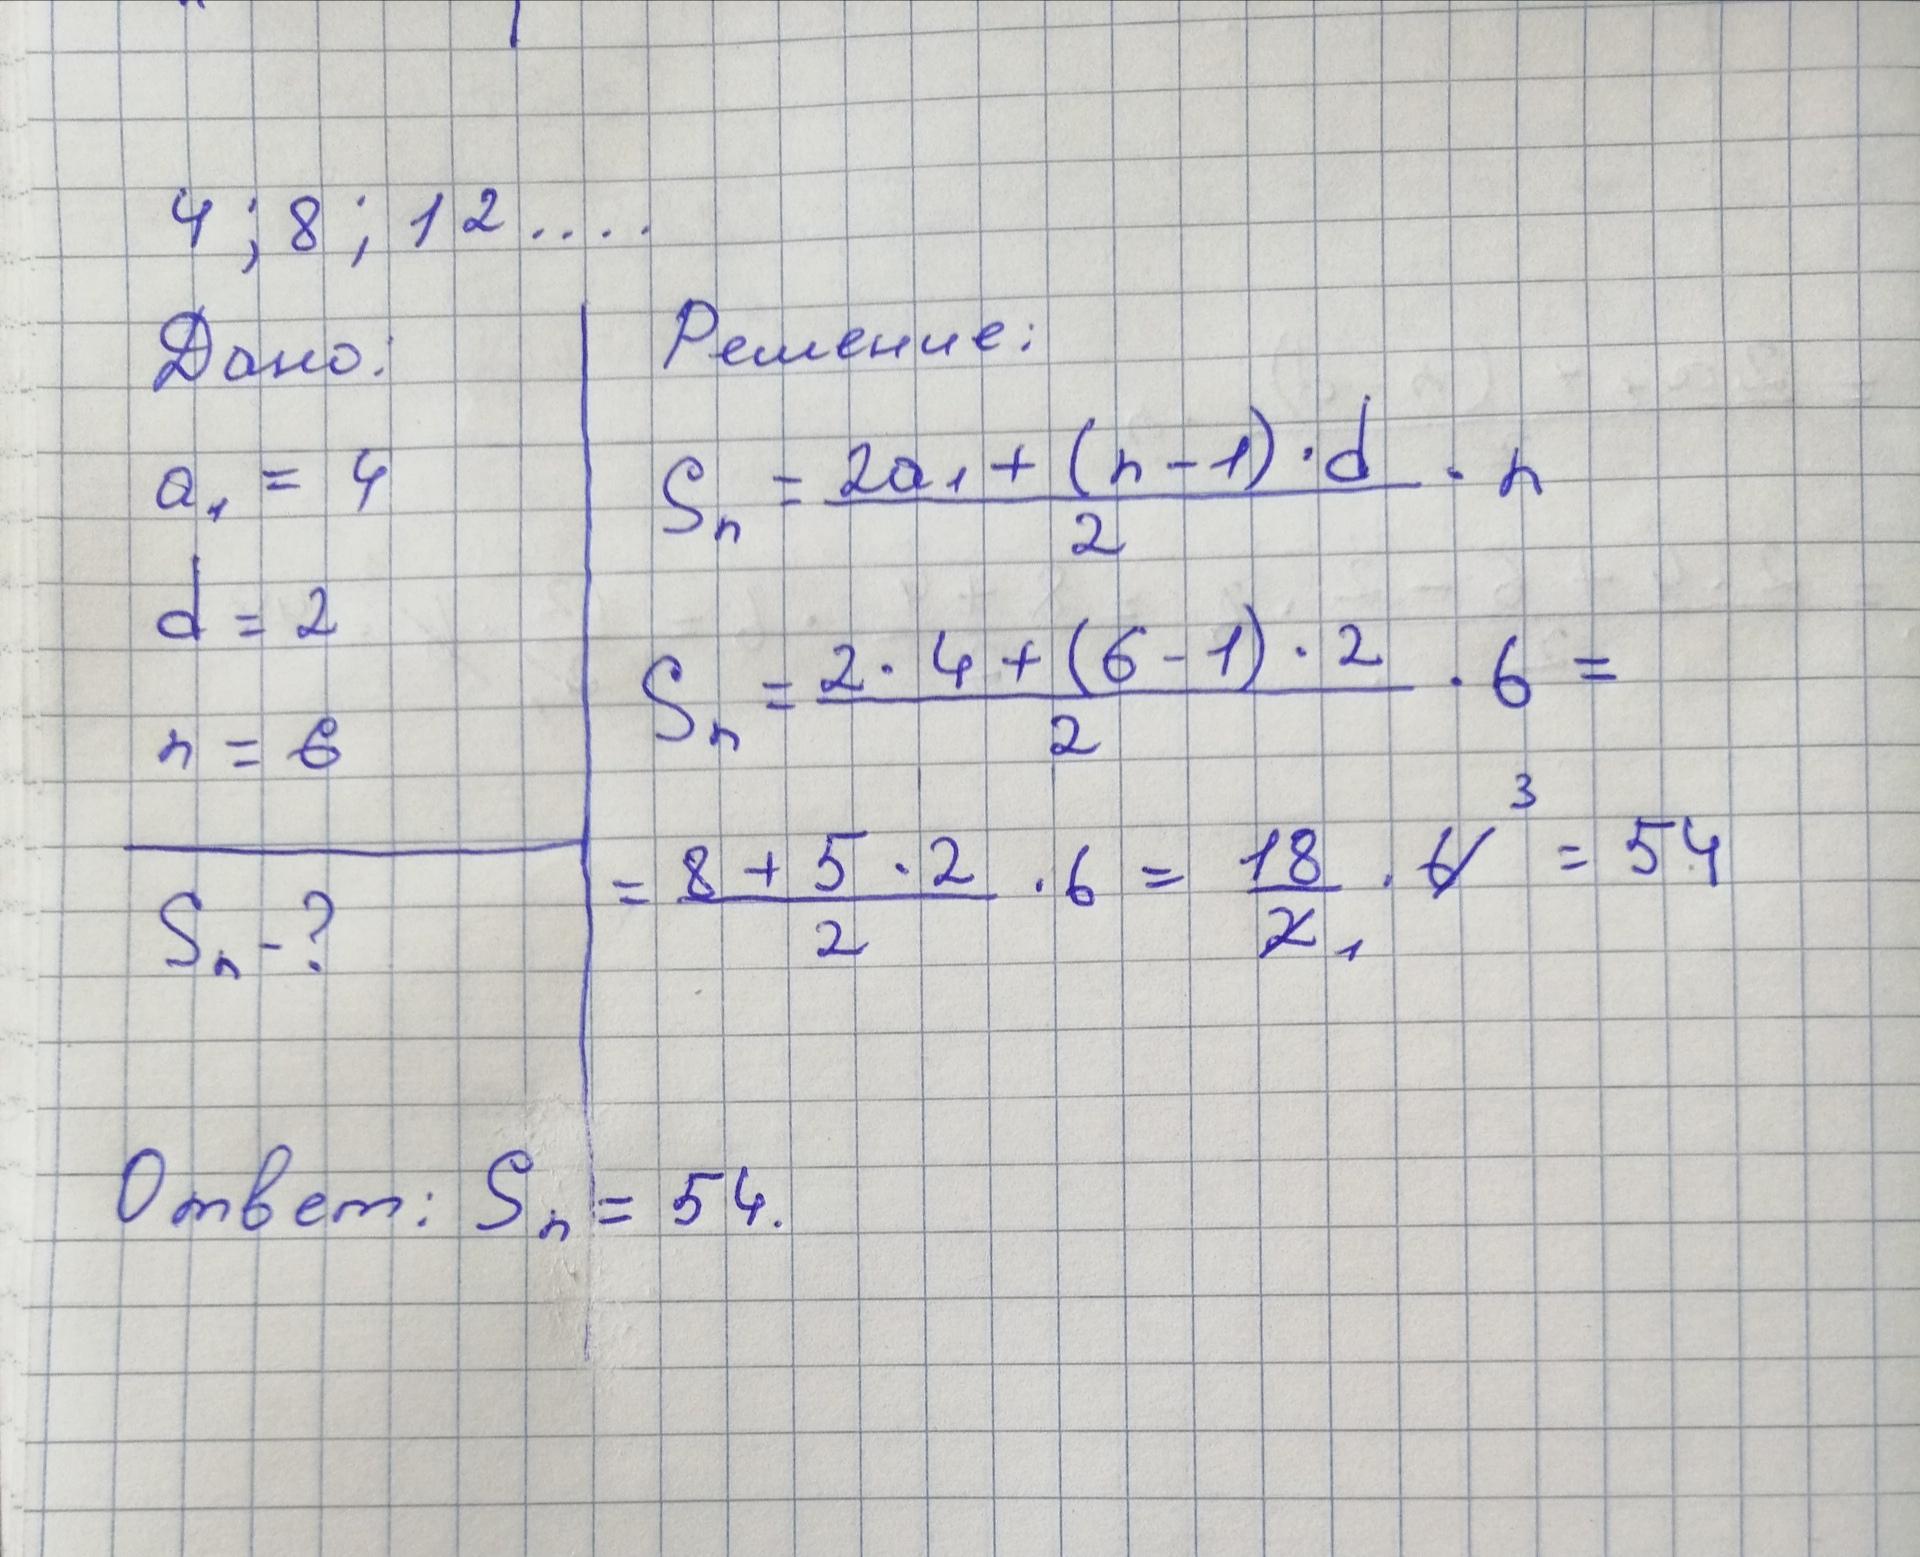 4; 8; 12....
Дано:
a₁ = 4
d = 2
n = 6
Sₙ - ?
Решение:
Sₙ = (2a₁ + (n - 1) · d) / 2 · n
Sₙ = (2 · 4 + (6 - 1) · 2) / 2 · 6 =
= (8 + 5 · 2) / 2 · 6 = 18 / 2 ₁ · 6 ³ = 54
Ответ: Sₙ = 54.